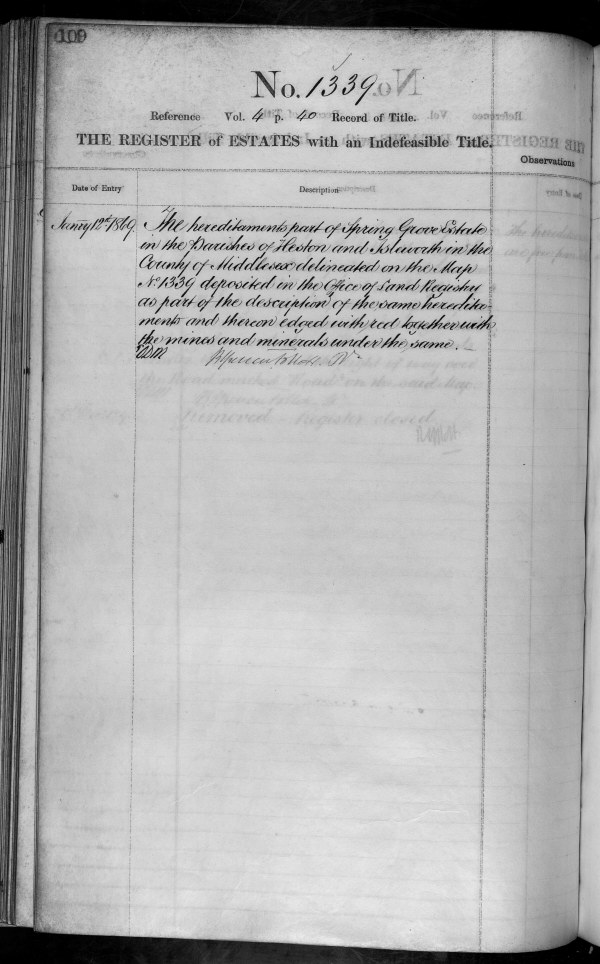 109
No. 1339
Reference Vol. 4 p. 40 Record of Title.
THE REGISTER of ESTATES with an Indefeasible Title.
Observations
Date of Entry
Description
January 12th 1869.
The hereditaments part of Spring Grove Estate
in the Parishes of Heston and Isleworth in the
County of Middlesex delineated on the Map
No. 1339 deposited in the Office of Land Registry
as part of the description of the same heredita-
ments and thereon edged with red together with
the mines and minerals under the same.